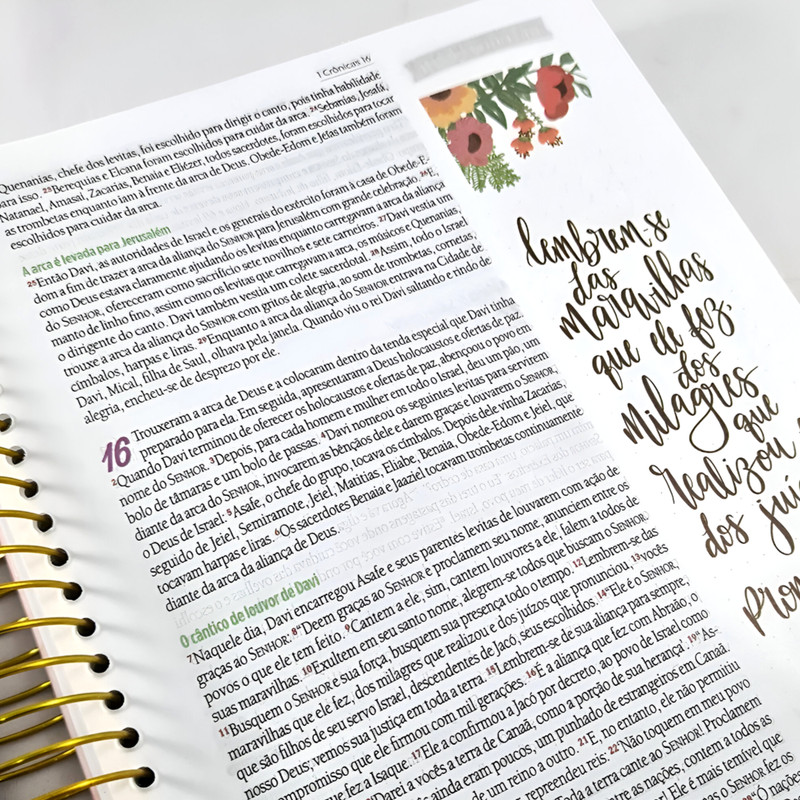 1 Crônicas 16
Quenanias, chefe dos levitas, foi escolhido para dirigir o canto, pois tinha habilidade
para isso. 23Berequias e Elcana foram escolhidos para cuidar da arca. 24Sebanias, Josafá,
Natanael, Amasai, Zacarias, Benaia e Eliézer, todos sacerdotes, foram escolhidos para tocar
as trombetas enquanto iam à frente da arca de Deus. Obede-Edom e Jeías também foram
escolhidos para cuidar da arca.
A arca é levada para Jerusalém
25Então Davi, as autoridades de Israel e os generais do exército foram à casa de Obede-E-
dom a fim de trazer a arca da aliança do SENHOR para Jerusalém com grande celebração. 26E,
como Deus estava claramente ajudando os levitas enquanto carregavam a arca da aliança
do SENHOR, ofereceram como sacrifício sete novilhos e sete carneiros. 27Davi vestia um
manto de linho fino, assim como os levitas que carregavam a arca, os músicos e Quenanias,
o dirigente do canto. Davi também vestia um colete sacerdotal. 28Assim, todo o Israel
trouxe a arca da aliança do SENHOR com gritos de alegria, ao som de trombetas, cornetas,
címbalos, harpas e liras. 29Enquanto a arca da aliança do SENHOR entrava na Cidade de
Davi, Mical, filha de Saul, olhava pela janela. Quando viu o rei Davi saltando e rindo de
alegria, encheu-se de desprezo por ele.
16 Trouxeram a arca de Deus e a colocaram dentro da tenda especial que Davi tinha
preparado para ela. Em seguida, apresentaram a Deus holocaustos e ofertas de paz.
2Quando Davi terminou de oferecer os holocaustos e ofertas de paz, abençoou o povo em
nome do SENHOR. 3Depois, para cada homem e mulher em todo o Israel, deu um pão, um
bolo de tâmaras e um bolo de passas. 4Davi nomeou os seguintes levitas para servirem
diante da arca do SENHOR, invocarem as bênçãos dele e darem graças e louvarem o SENHOR,
o Deus de Israel: 5Asafe, o chefe do grupo, tocava os címbalos. Depois dele vinha Zacarias,
seguido de Jeiel, Semiramote, Jeiel, Matitias, Eliabe, Benaia, Obede-Edom e Jeiel, que
tocavam harpas e liras. 6Os sacerdotes Benaia e Jaaziel tocavam trombetas continuamente
diante da arca da aliança de Deus.
O cântico de louvor de Davi
7Naquele dia, Davi encarregou Asafe e seus parentes levitas de louvarem com ação de
graças ao SENHOR: 8"Deem graças ao SENHOR e proclamem seu nome, anunciem entre os
povos o que ele tem feito. 9Cantem a ele, sim, cantem louvores a ele, falem a todos de
suas maravilhas. 10Exultem em seu santo nome, alegrem-se todos que buscam o SENHOR.
11Busquem o SENHOR e sua força, busquem sua presença todo o tempo. 12Lembrem-se das
maravilhas que ele fez, dos milagres que realizou e dos juízos que pronunciou, 13vocês
que são filhos de seu servo Israel, descendentes de Jacó, seus escolhidos. 14"Ele é o SENHOR,
nosso Deus; vemos sua justiça em toda a terra. 15Lembrem-se de sua aliança para sempre,
compromisso que ele firmou com mil gerações. 16É a aliança que fez com Abraão, o
que fez a Isaque. 17Ele a confirmou a Jacó por decreto, ao povo de Israel como
'Darei a vocês a terra de Canaã, como a porção de sua herança'. 19"As-
ainda eram poucos, um punhado de estrangeiros em Canaã,
de um reino a outro. 21E, no entanto, ele não permitiu
repreendeu reis: 22'Não toquem em meu povo
Toda a terra cante ao SENHOR! Proclamem
entre as nações, contem a todos as
Ele é mais temível que
o SENHOR fez os
"Ó nações
lembrem-se
das
maravilhas
que ele fez,
dos
milagres
que
realizou
dos